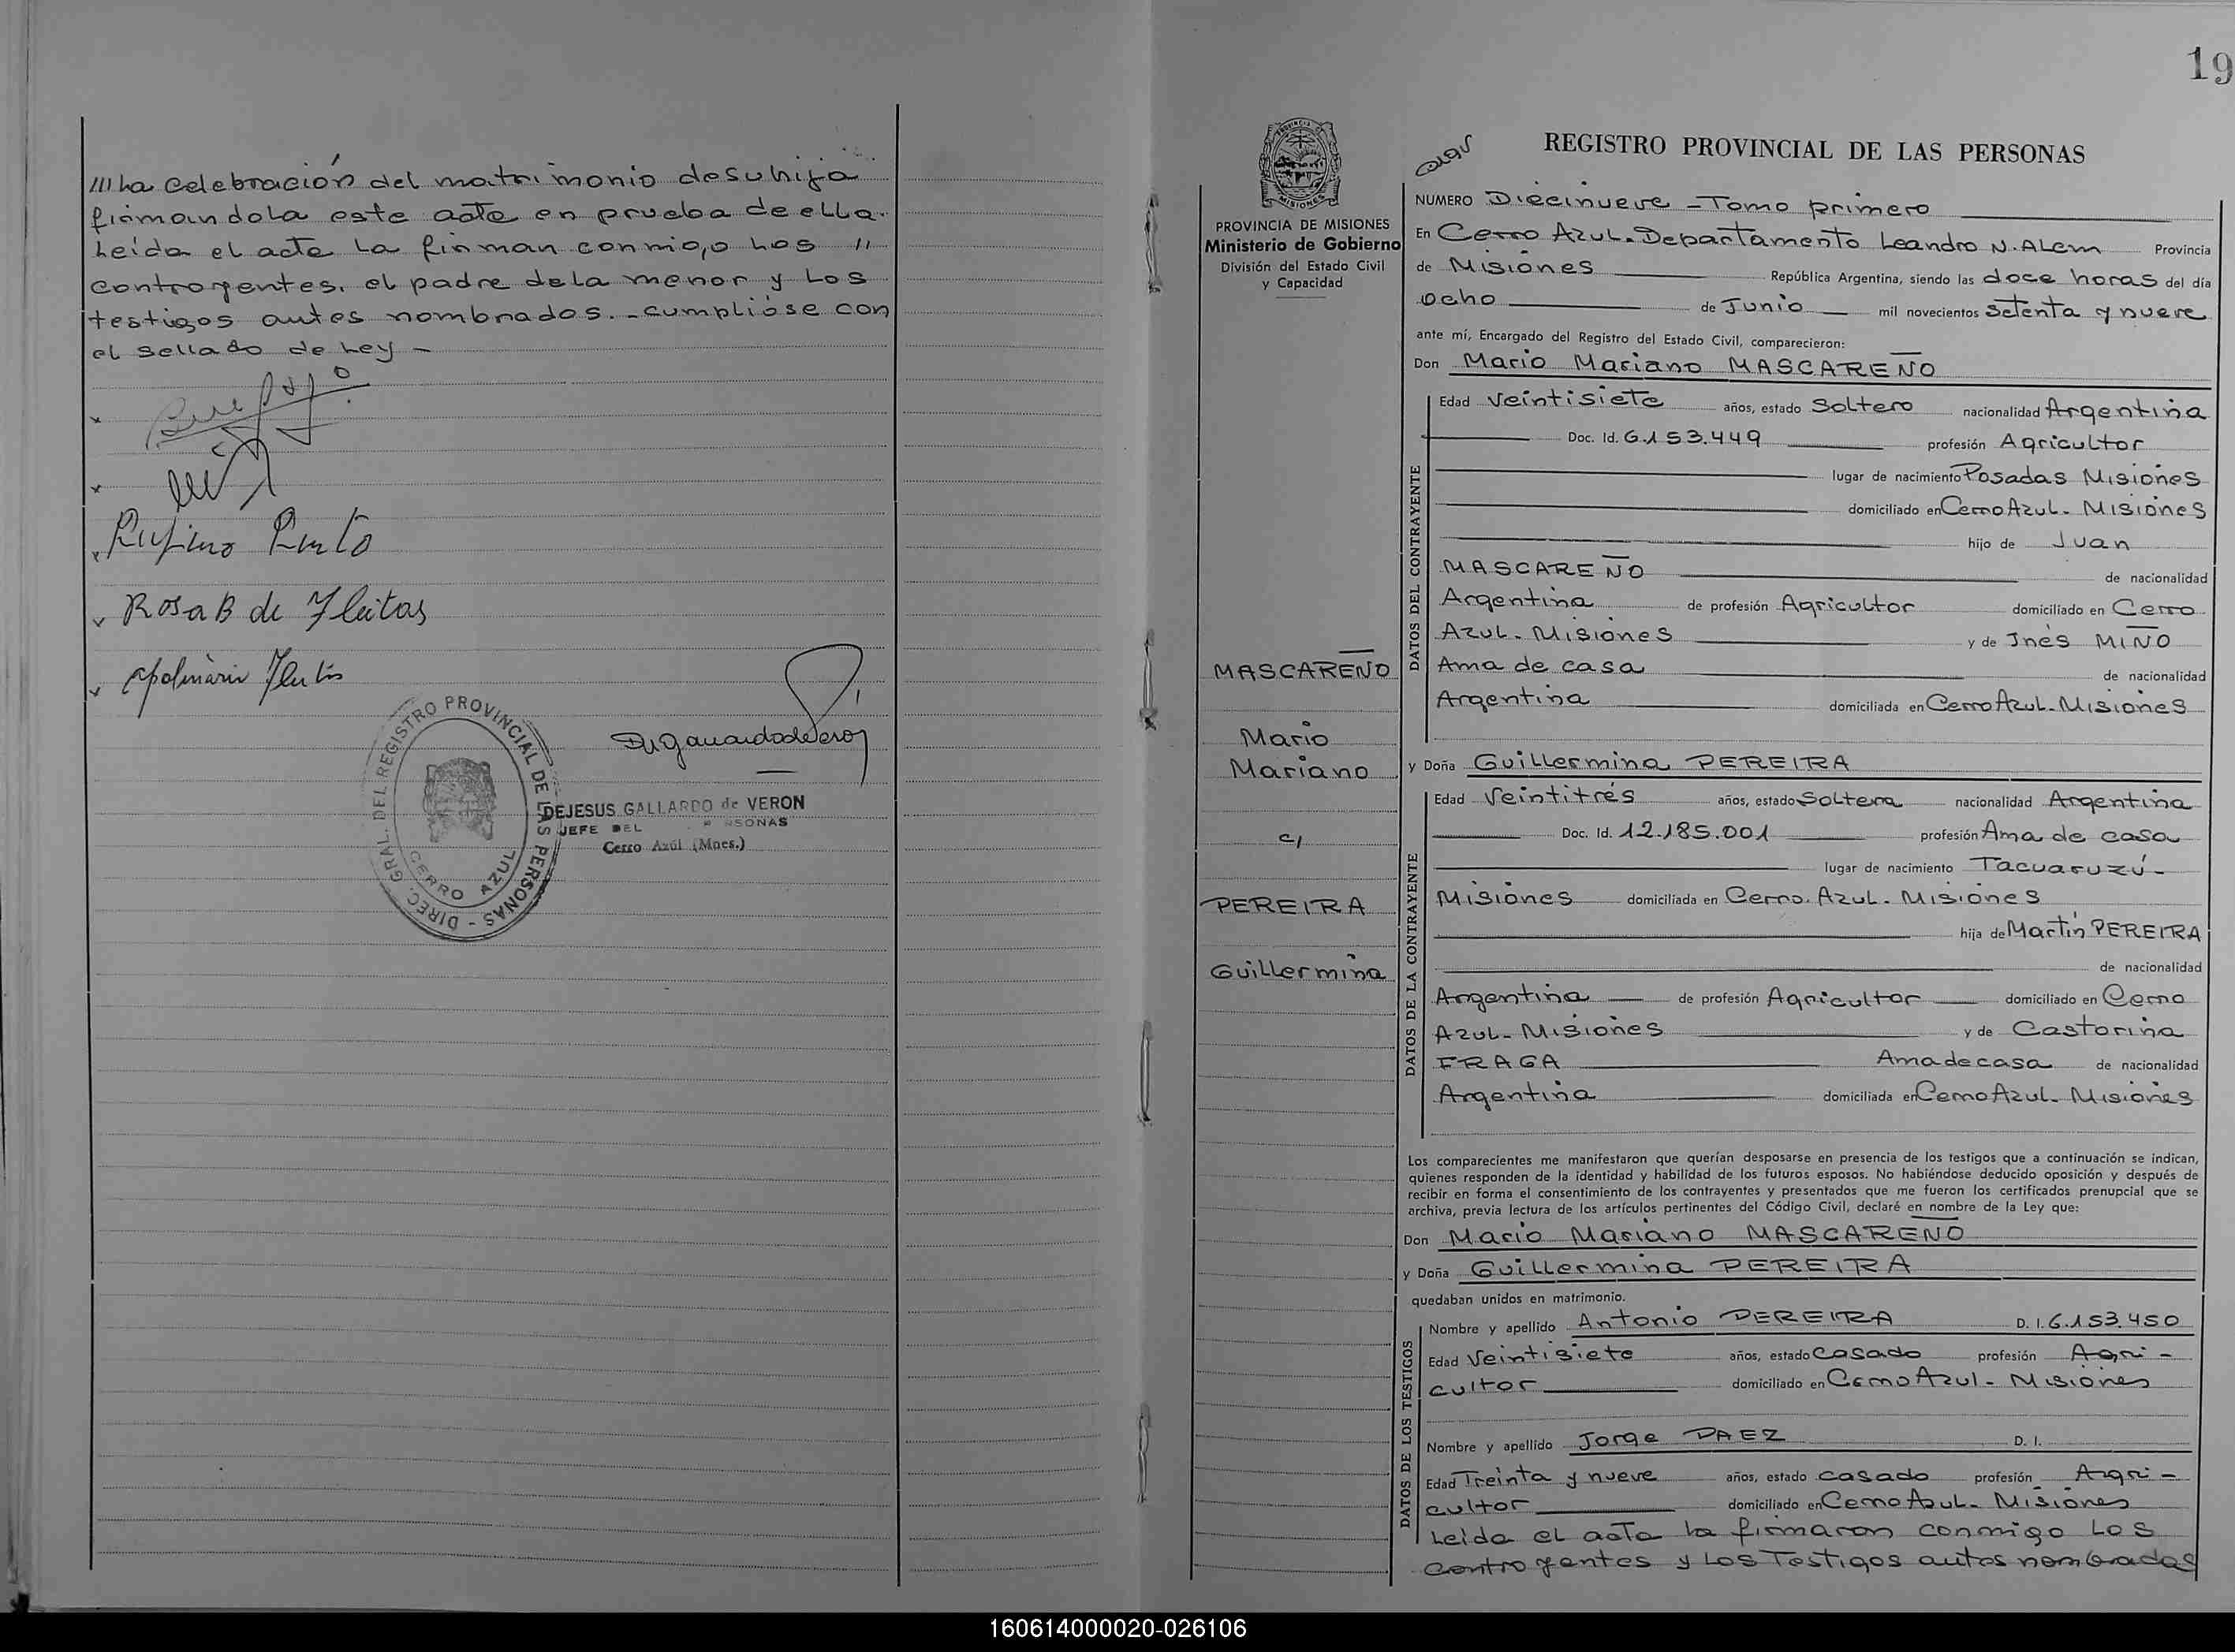 /// La celebración del matrimonio de su hija
firmandola este acta en prueba de ella.
Leída el acta la firman conmigo, los //
contrayentes, el padre de la menor y los
testigos antes nombrados. - cumplióse con
el sellado de Ley -
x
x
Rufino Pinto
Rosa B de Fleitas
DIREC. GRAL. DEL REGISTRO PROVINCIAL DE LAS PERSONAS -
CERRO AZUL
DEJESUS GALLARDO de VERON
JEFE DEL
Cerro Azúl (Mnes.)
19
PROVINCIA DE MISIONES
Ministerio de Gobierno
División del Estado Civil
y Capacidad
MASCAREÑO
Mario
Mariano
c/
PEREIRA
Guillermina
REGISTRO PROVINCIAL DE LAS PERSONAS
NUMERO Diecinueve - Tomo primero
En Cerro Azul. Departamento Leandro N. Alem Provincia
de Misiones República Argentina, siendo las doce horas del día
ocho de Junio mil novecientos setenta y nueve
ante mí, Encargado del Registro del Estado Civil, comparecieron:
Don Mario Mariano MASCAREÑO
DATOS DEL CONTRAYENTE
Edad Veintisiete años, estado Soltero nacionalidad Argentina
Doc. Id. 6.153.449 profesión Agricultor
lugar de nacimiento Posadas Misiones
domiciliado en Cerro Azul. Misiones
hijo de Juan
MASCAREÑO de nacionalidad
Argentina de profesión Agricultor domiciliado en Cerro
Azul. Misiones y de Inés MIÑO
Ama de casa de nacionalidad
Argentina domiciliada en Cerro Azul. Misiones
y Doña Guillermina PEREIRA
DATOS DE LA CONTRAYENTE
Edad Veintitrés años, estado Soltera nacionalidad Argentina
Doc. Id. 12.185.001 profesión Ama de casa
lugar de nacimiento Tacuaruzú -
Misiones domiciliada en Cerro. Azul. Misiones
hija de Martín PEREIRA
de nacionalidad
Argentina de profesión Agricultor domiciliado en Cerro
Azul. Misiones y de Castorina
FRAGA Ama de casa de nacionalidad
Argentina domiciliada en Cerro Azul. Misiones
Los comparecientes me manifestaron que querían desposarse en presencia de los testigos que a continuación se indican,
quienes responden de la identidad y habilidad de los futuros esposos. No habiéndose deducido oposición y después de
recibir en forma el consentimiento de los contrayentes y presentados que me fueron los certificados prenupcial que se
archiva, previa lectura de los artículos pertinentes del Código Civil, declaré en nombre de la Ley que:
Don Mario Mariano MASCAREÑO
y Doña Guillermina PEREIRA
quedaban unidos en matrimonio.
DATOS DE LOS TESTIGOS
Nombre y apellido Antonio PEREIRA D. I. 6.153.450
Edad Veintisiete años, estado casado profesión Agri -
cultor domiciliado en Cerro Azul. Misiones
Nombre y apellido Jorge PAEZ D. I.
Edad Treinta y nueve años, estado casado profesión Agri -
cultor domiciliado en Cerro Azul. Misiones
Leida el acta la firmaron conmigo los
contrayentes y los Testigos antes nombrados
160614000020-026106